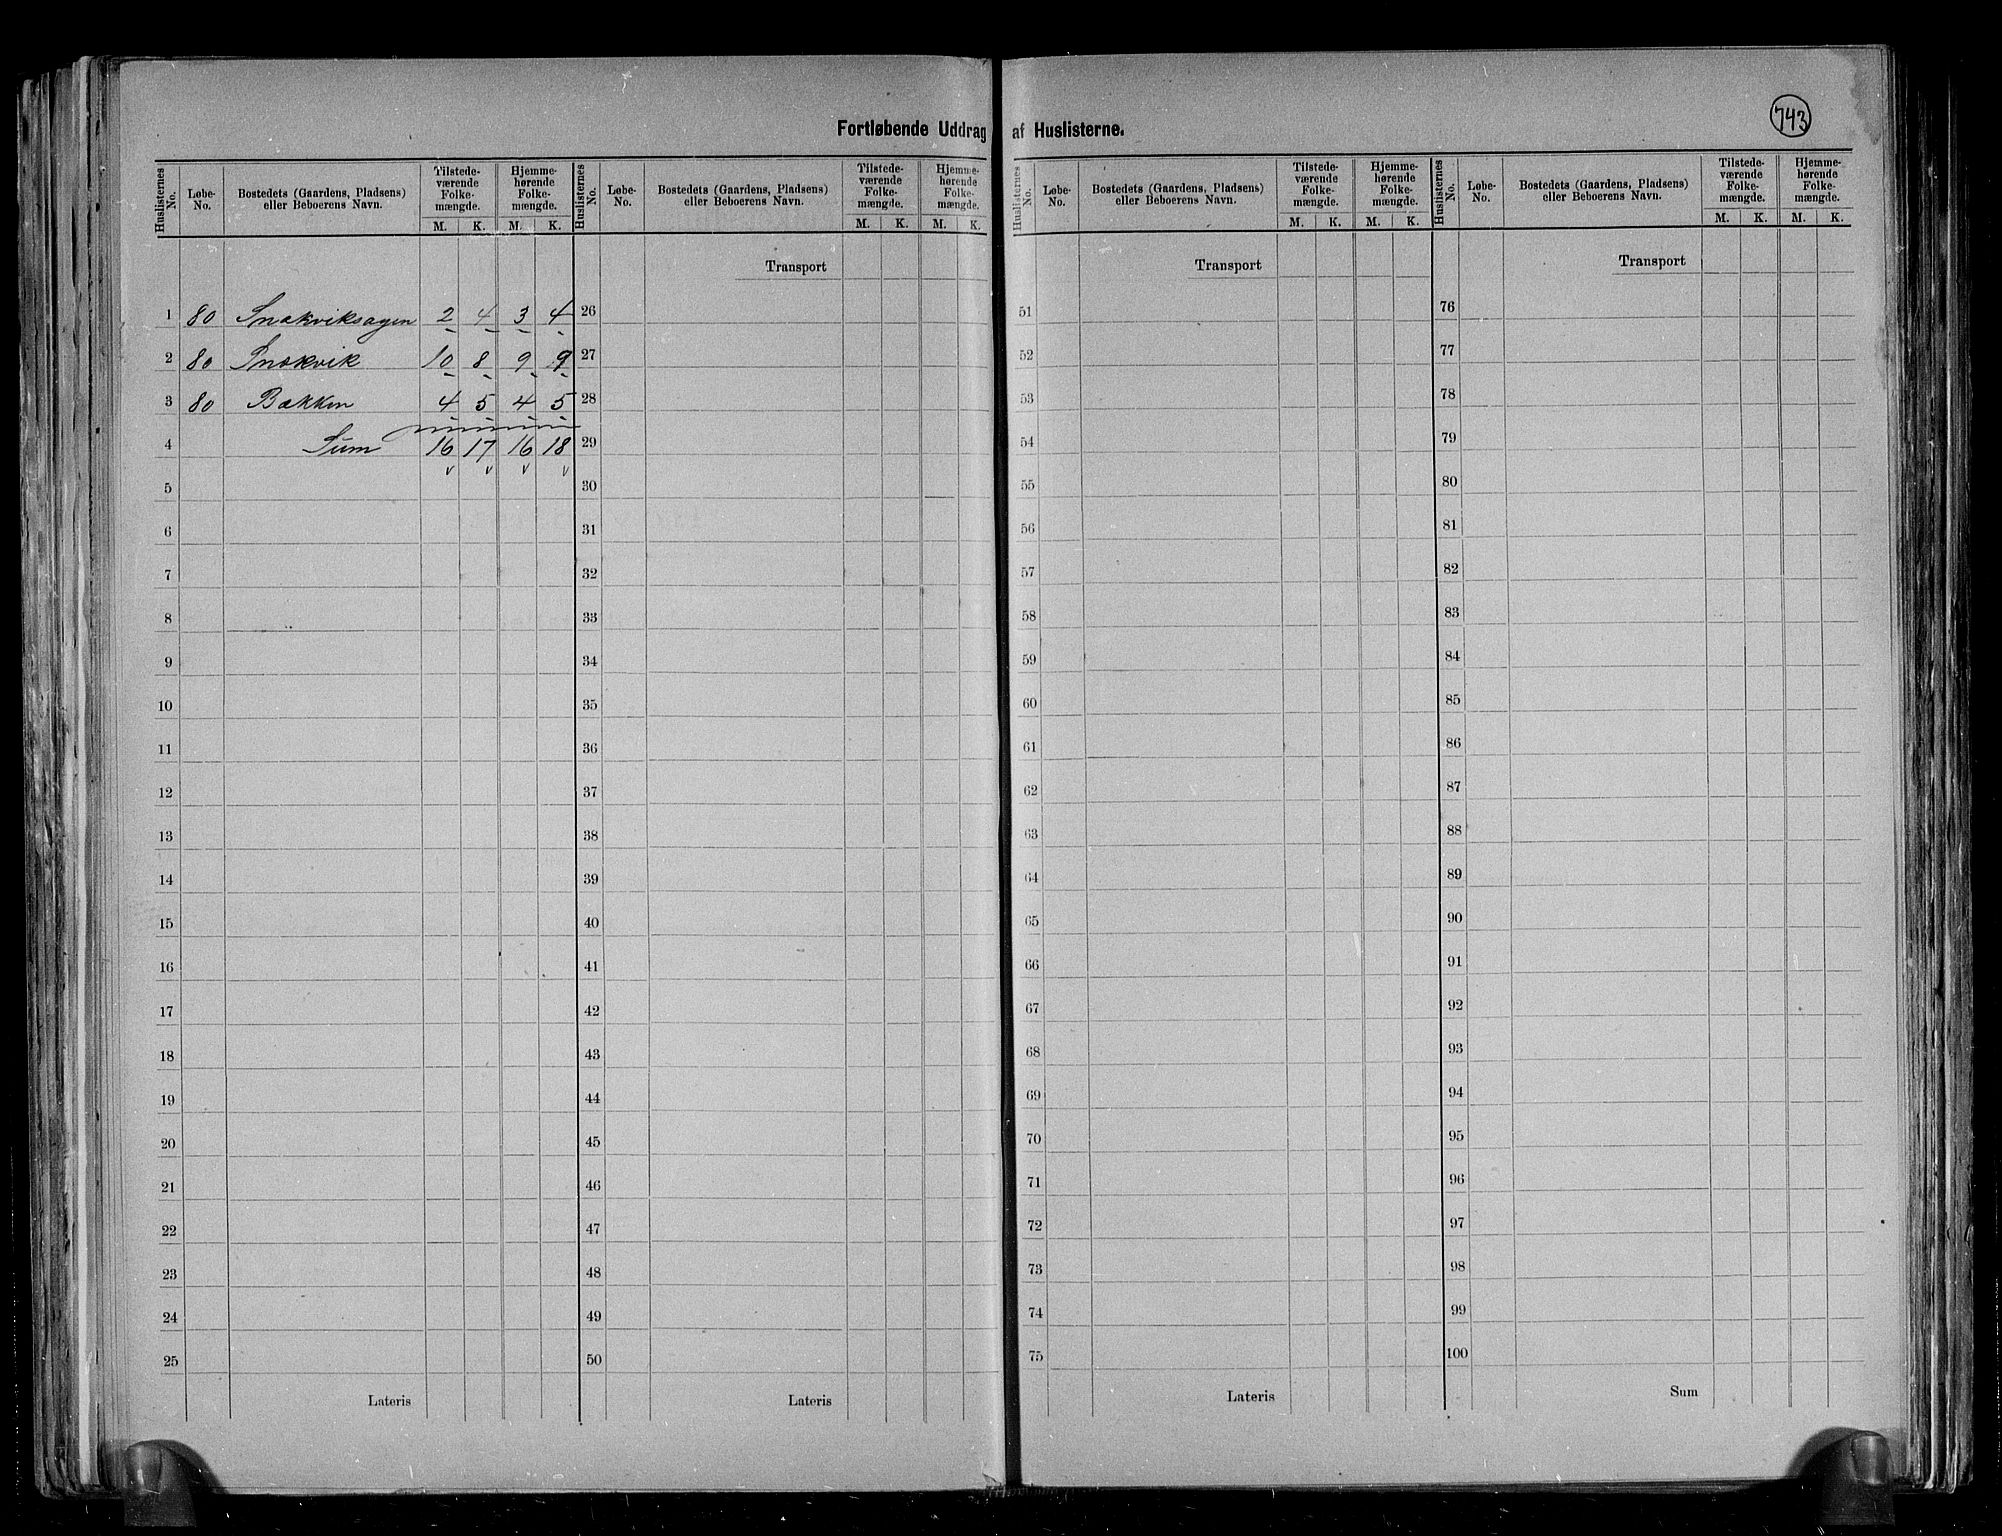 743
Fortløbende Uddrag af Huslisterne.
Huslisternes No. Løbe-No. Bostedets (Gaardens, Pladsens) eller Beboerens Navn. Tilstede-værende Folke-mængde. M. K. Hjemme-hørende Folke-mængde. M. K.
Huslisternes No. Løbe-No. Bostedets (Gaardens, Pladsens) eller Beboerens Navn. Tilstede-værende Folke-mængde. M. K. Hjemme-hørende Folke-mængde. M. K.
Huslisternes No. Løbe-No. Bostedets (Gaardens, Pladsens) eller Beboerens Navn. Tilstede-værende Folke-mængde. M. K. Hjemme-hørende Folke-mængde. M. K.
Huslisternes No. Løbe-No. Bostedets (Gaardens, Pladsens) eller Beboerens Navn. Tilstede-værende Folke-mængde. M. K. Hjemme-hørende Folke-mængde. M. K.
Transport Transport Transport
1 80 Snekviksagen 2 4 3 4 26 51 76
2 80 Snekvik 10 8 9 9 27 52 77
3 80 Bakken 4 5 4 5 28 53 78
4 Sum 16 17 16 18 29 54 79
5 30 55 80
6 31 56 81
7 32 57 82
8 33 58 83
9 34 59 84
10 35 60 85
11 36 61 86
12 37 62 87
13 38 63 88
14 39 64 89
15 40 65 90
16 41 66 91
17 42 67 92
18 43 68 93
19 44 69 94
20 45 70 95
21 46 71 96
22 47 72 97
23 48 73 98
24 49 74 99
25 50 75 100
Lateris Lateris Lateris Sum